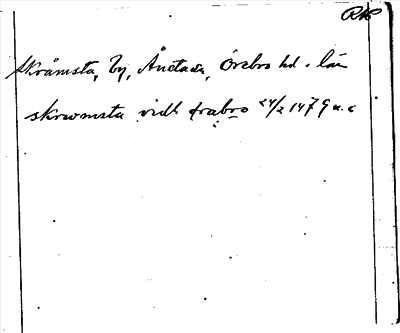 RAP
Skråmsta, by, Ånsta sn, Örebro hd o. län
skrwmsta vidh ørabro 24/2 1479 u.c